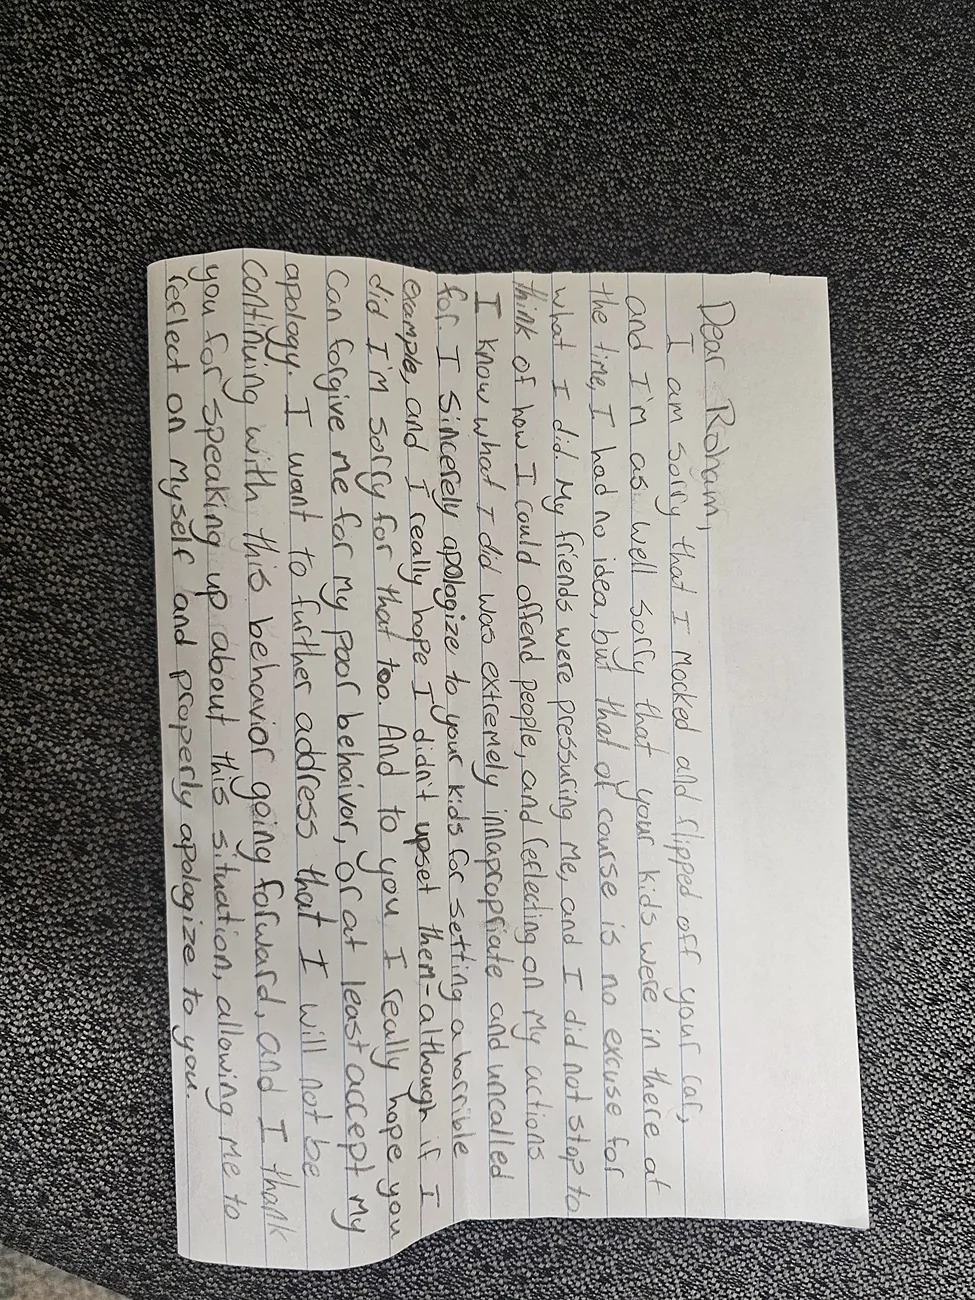 Dear Roham,
I am sorry that I mocked and flipped off your car,
and I'm as well sorry that your kids were in there at
the time, I had no idea, but that of course is no excuse for
what I did. My friends were pressuring me, and I did not stop to
think of how I could offend people, and reflecting on my actions
I know what I did was extremely innapropriate and uncalled
for. I sincerely apologize to your kids for setting a horrible
example, and I really hope I didn't upset them - although if I
did I'm sorry for that too. And to you I really hope you
can forgive me for my poor behaivor, or at least accept my
apology. I want to further address that I will not be
continuing with this behavior going forward, and I thank
you for speaking up about this situation, allowing me to
reflect on myself and properly apologize to you.